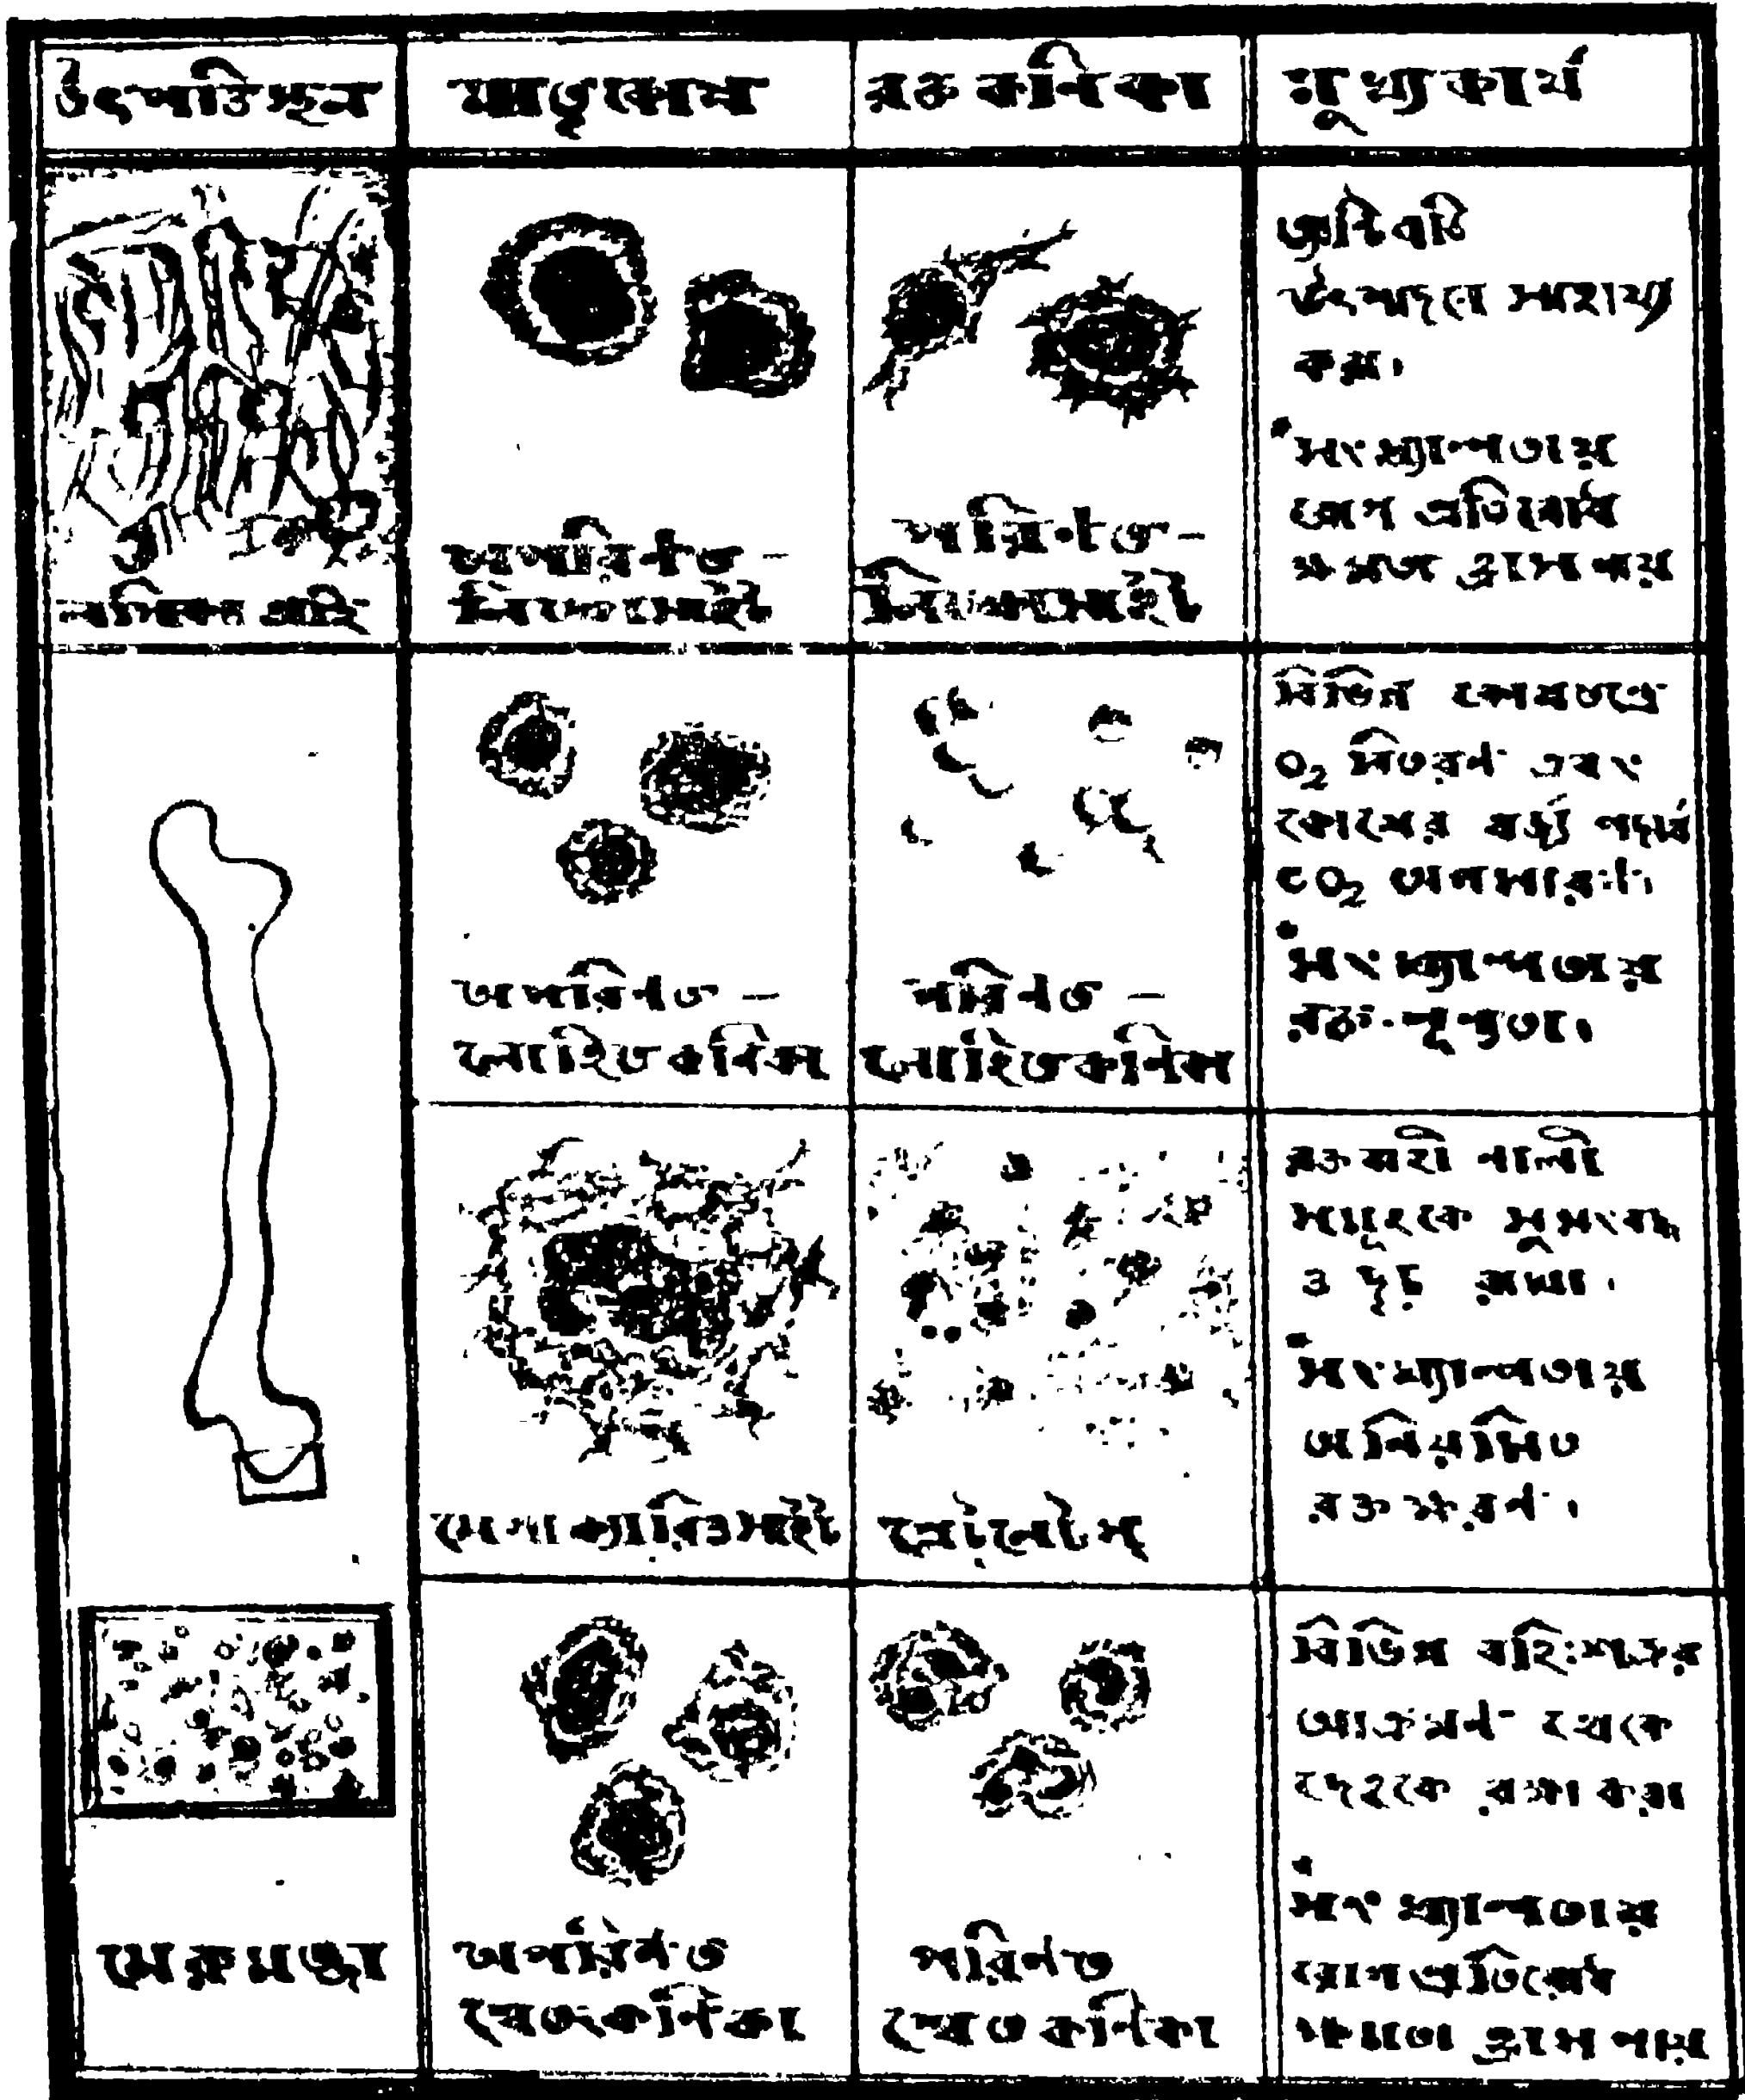 উৎপত্তিস্থল
মাতৃকোষ
রক্ত কনিকা
মুখ্যকার্য
লসিকা গ্রন্থি
অপরিণত -
লিম্ফোসাইট
পরিণত -
লিম্ফোসাইট
অ্যান্টিবডি
উৎপাদনে সাহায্য
করা।
সংখ্যাল্পতায়
রোগ প্রতিরোধ
ক্ষমতা হ্রাস পায়
অপরিণত -
লোহিত কনিকা
পরিণত -
লোহিত কনিকা
বিভিন্ন কোষতন্ত্রে
O₂ বিতরণ এবং
কোষের বর্জ্য পদার্থ
CO₂ অপসারণ।
সংখ্যাল্পতায়
রক্ত-শূন্যতা।
মেগাক্যারিওসাইট
প্লেটলেটস্
রক্তবাহী নালী
সমূহকে সুসংবদ্ধ
ও দৃঢ় রাখা।
সংখ্যাল্পতায়
অনিয়মিত
রক্তক্ষরণ।
মেরুমজ্জা
অপরিণত
শ্বেতকনিকা
পরিণত
শ্বেত কনিকা
বিভিন্ন বহিঃশত্রুর
আক্রমণ থেকে
দেহকে রক্ষা করা
সংখ্যাল্পতায়
রোগ প্রতিরোধ
ক্ষমতা হ্রাস পায়